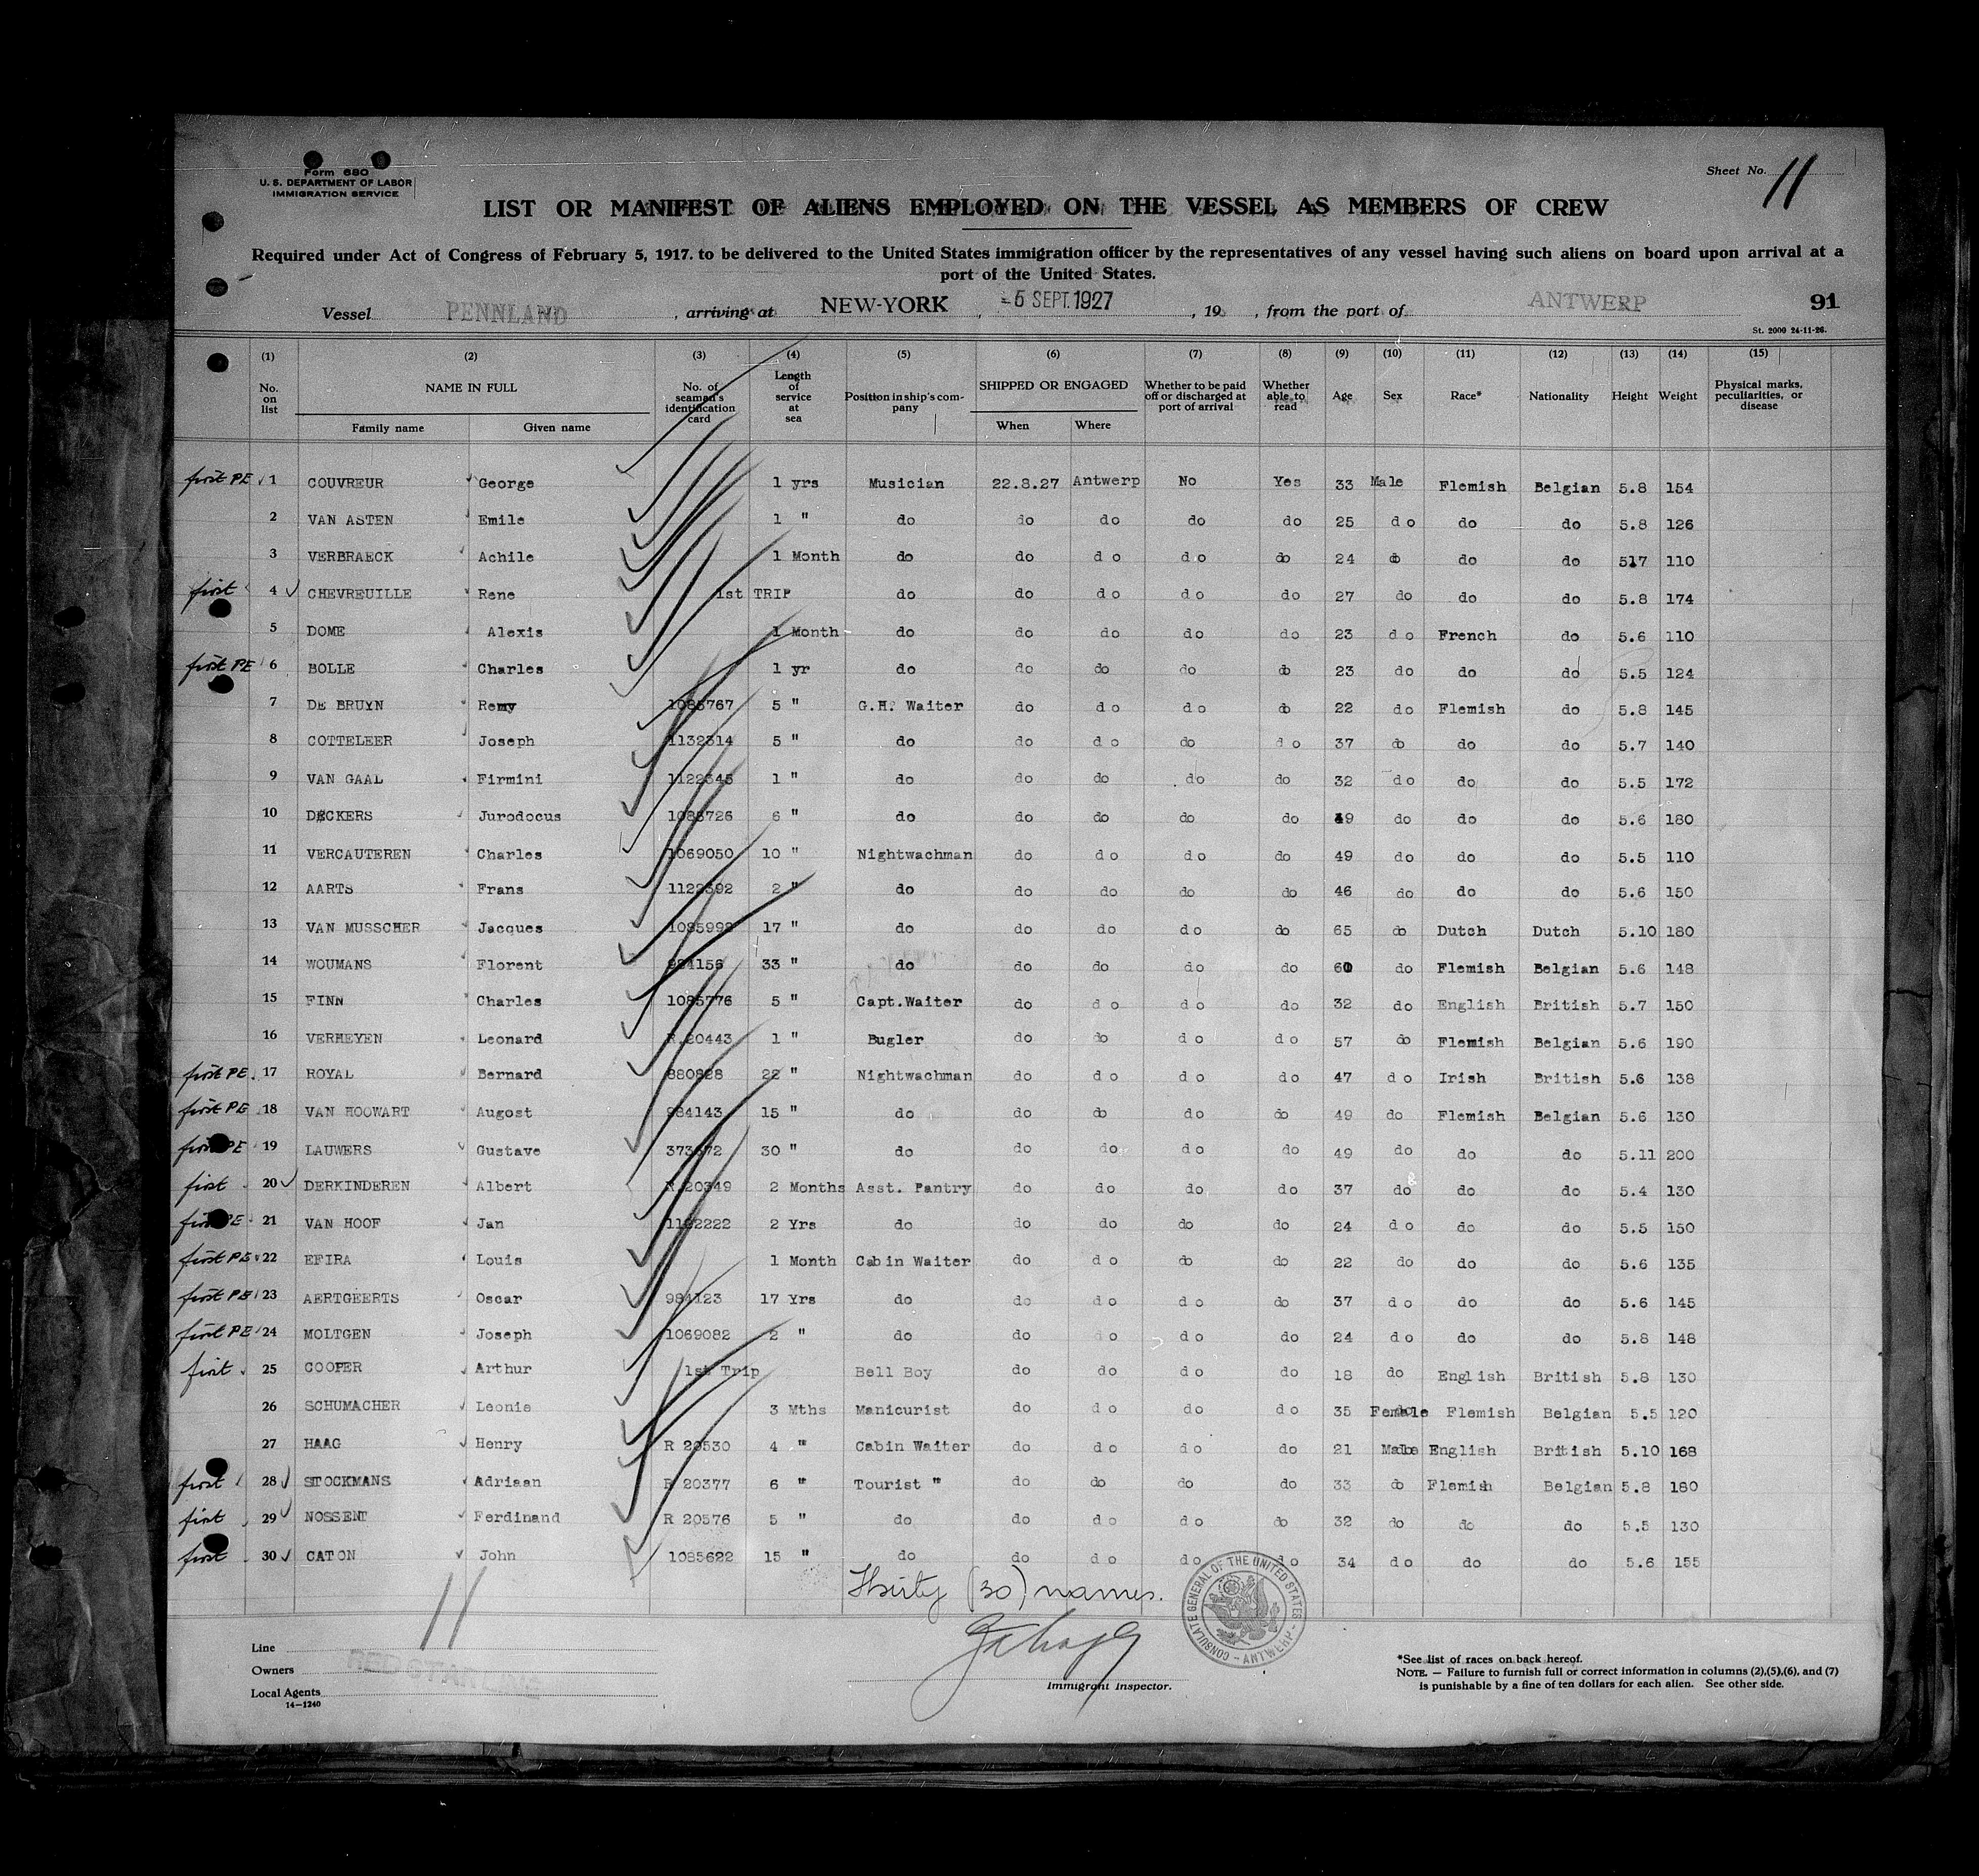 Form 680
U. S. DEPARTMENT OF LABOR
IMMIGRATION SERVICE
Sheet No. 11
LIST OR MANIFEST OF ALIENS EMPLOYED ON THE VESSEL AS MEMBERS OF CREW
Required under Act of Congress of February 5, 1917. to be delivered to the United States immigration officer by the representatives of any vessel having such aliens on board upon arrival at a
port of the United States.
Vessel PENNLAND, arriving at NEW-YORK, -5 SEPT. 1927, 19 , from the port of ANTWERP 91
St. 2000 24-11-26.
(1) (2) (3) (4) (5) (6) (7) (8) (9) (10) (11) (12) (13) (14) (15)
No. on list NAME IN FULL Family name Given name No. of seaman's identification card Length of service at sea Position in ship's company SHIPPED OR ENGAGED When Where Whether to be paid off or discharged at port of arrival Whether able to read Age Sex Race* Nationality Height Weight Physical marks, peculiarities, or disease
first PE 1 COUVREUR George 1 yrs Musician 22.8.27 Antwerp No Yes 33 Male Flemish Belgian 5.8 154
2 VAN ASTEN Emile 1 " do do do do do 25 do do do 5.8 126
3 VERBRAECK Achile 1 Month do do do do do 24 do do do 517 110
first 4 CHEVREUILLE Rene 1st TRIP do do do do do 27 do do do 5.8 174
5 DOME Alexis 1 Month do do do do do 23 do French do 5.6 110
first PE 6 BOLLE Charles 1 yr do do do do do 23 do do do 5.5 124
7 DE BRUYN Remy 1085767 5 " G.H. Waiter do do do do 22 do Flemish do 5.8 145
8 COTTELEER Joseph 1132314 5 " do do do do do 37 do do do 5.7 140
9 VAN GAAL Firmini 1122345 1 " do do do do do 32 do do do 5.5 172
10 DECKERS Jurodocus 1085726 6 " do do do do do 49 do do do 5.6 180
11 VERCAUTEREN Charles 1069050 10 " Nightwachman do do do do 49 do do do 5.5 110
12 AARTS Frans 1122392 2 " do do do do do 46 do do do 5.6 150
13 VAN MUSSCHER Jacques 1085992 17 " do do do do do 65 do Dutch Dutch 5.10 180
14 WOUMANS Florent 984156 33 " do do do do do 60 do Flemish Belgian 5.6 148
15 FINN Charles 1085776 5 " Capt.Waiter do do do do 32 do English British 5.7 150
16 VERHEYEN Leonard R.20443 1 " Bugler do do do do 57 do Flemish Belgian 5.6 190
first PE 17 ROYAL Bernard 880828 22 " Nightwachman do do do do 47 do Irish British 5.6 138
first PE 18 VAN HOOWART Augost 984143 15 " do do do do do 49 do Flemish Belgian 5.6 130
first PE 19 LAUWERS Gustave 373372 30 " do do do do do 49 do do do 5.11 200
first 20 DERKINDEREN Albert R.20349 2 Months Asst. Pantry do do do do 37 do do do 5.4 130
first PE 21 VAN HOOF Jan 1122222 2 Yrs do do do do do 24 do do do 5.5 150
first PE 22 EFIRA Louis 1 Month Cabin Waiter do do do do 22 do do do 5.6 135
first PE 23 AERTGEERTS Oscar 984123 17 Yrs do do do do do 37 do do do 5.6 145
first PE 24 MOLTGEN Joseph 1069082 2 " do do do do do 24 do do do 5.8 148
first 25 COOPER Arthur 1st Trip Bell Boy do do do do 18 do English British 5.8 130
26 SCHUMACHER Leonie 3 Mths Manicurist do do do do 35 Female Flemish Belgian 5.5 120
27 HAAG Henry R 20530 4 " Cabin Waiter do do do do 21 Male English British 5.10 168
first 28 STOCKMANS Adriaan R 20377 6 " Tourist " do do do do 33 do Flemish Belgian 5.8 180
first 29 NOSSENT Ferdinand R 20576 5 " do do do do do 32 do do do 5.5 130
first 30 CATON John 1085622 15 " do do do do do 34 do do do 5.6 155
Thirty (30) names.
11
CONSULATE GENERAL OF THE UNITED STATES - ANTWERP -
Line
Owners RED STAR LINE
Local Agents
14—1240
Immigrant Inspector.
*See list of races on back hereof.
NOTE. — Failure to furnish full or correct information in columns (2),(5),(6), and (7)
is punishable by a fine of ten dollars for each alien. See other side.